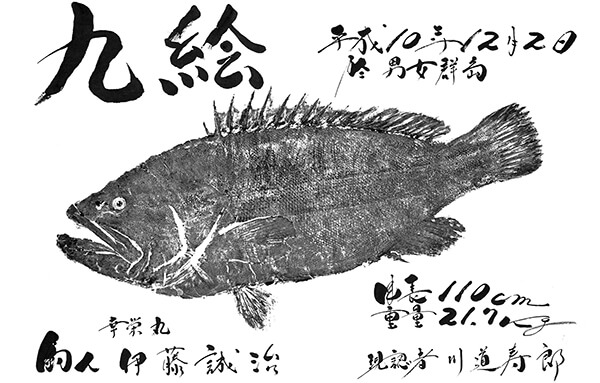 九絵
平成10年12月2日
於 男女群島
身長 110cm
重量 21.7kg
幸栄丸
釣人 伊藤誠治
現認者 川道寿郎